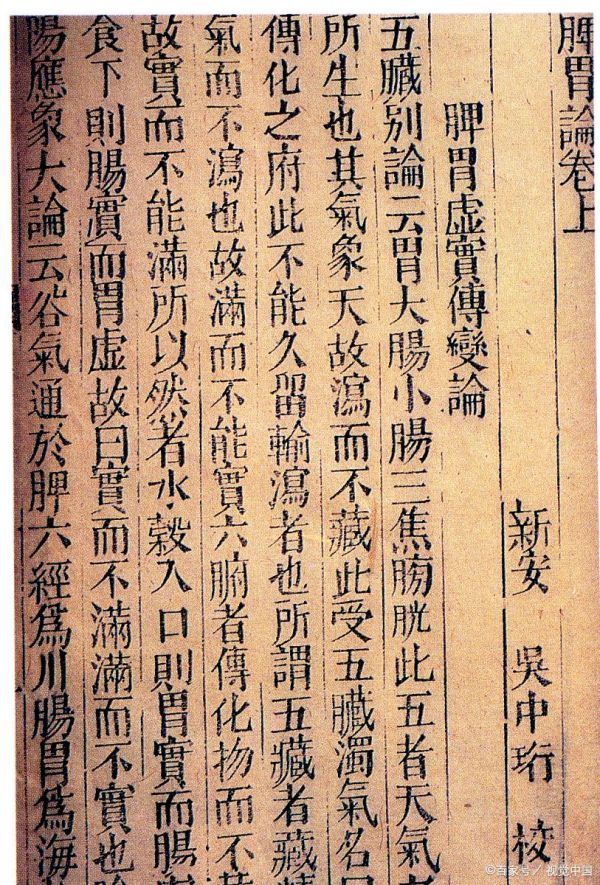 脾胃論卷上
新安 吳中珩 校
脾胃虛實傳變論
五臟別論云胃大腸小腸三焦膀胱此五者天氣
所生也其氣象天故瀉而不藏此受五臟濁氣名
傳化之府此不能久留輸瀉者也所謂五藏者藏
氣而不瀉也故滿而不能實六腑者傳化物而不
故實而不能滿所以然者水穀入口則胃實而腸
食下則腸實而胃虛故曰實而不滿滿而不實也
陽應象大論云谷氣通於脾六經爲川腸胃爲海
©百家号／视觉中国